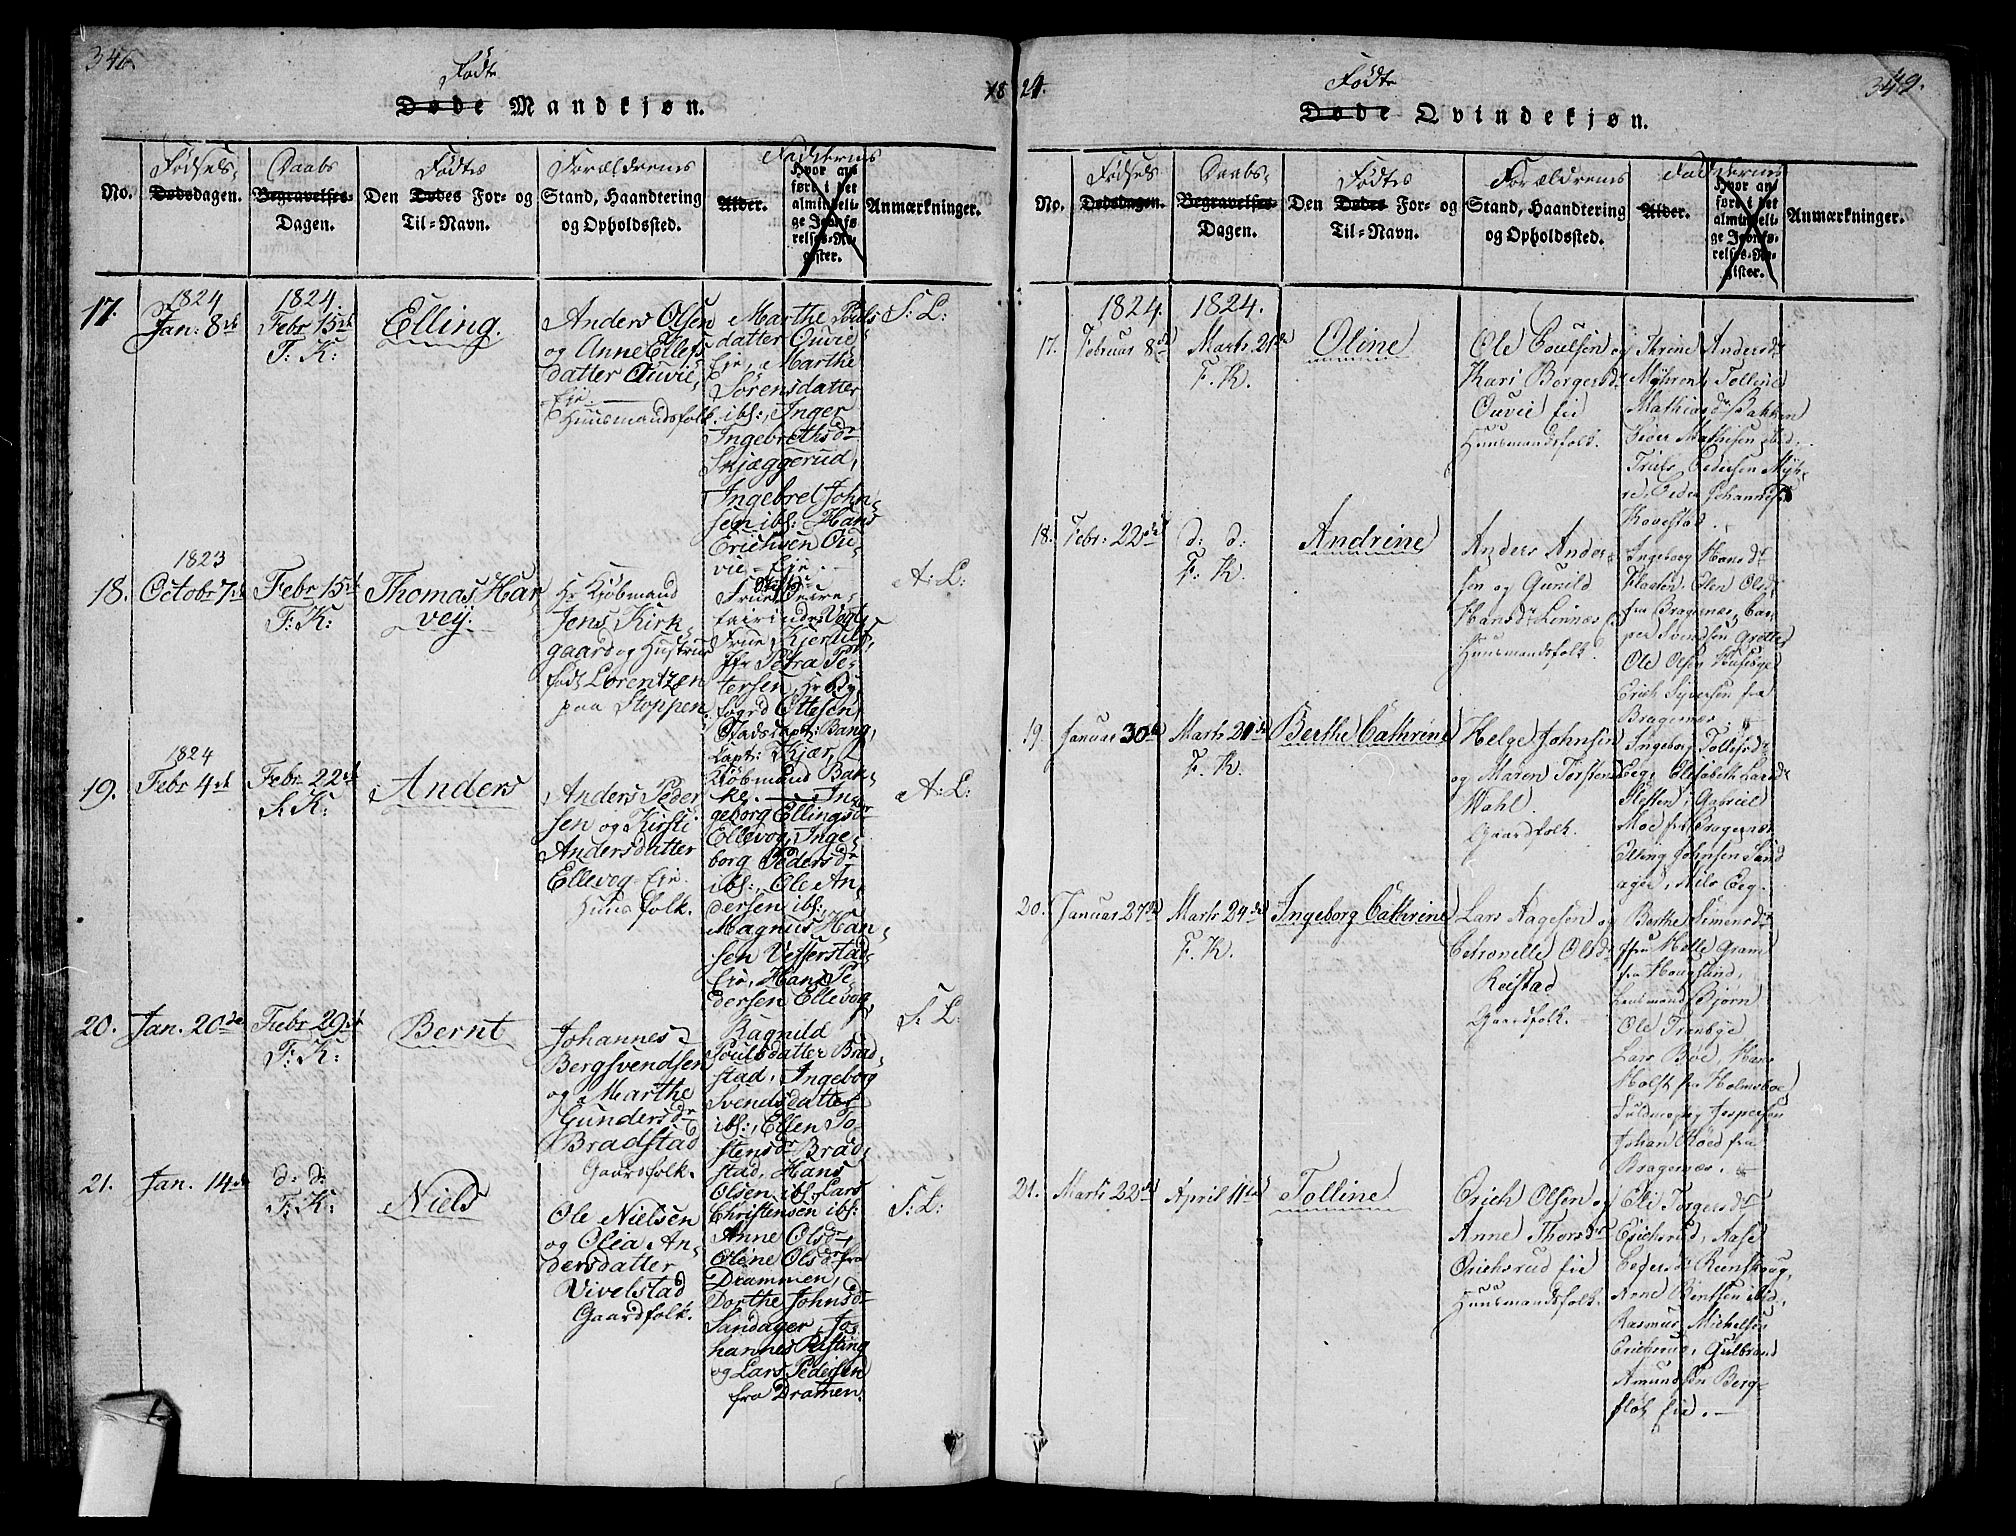 346.
Fødte
Døde Mandkjøn.
18
No.
Fødsels-
Dødsdagen.
Daabs
Begravelses-
Dagen.
Fødtes
Den Dødes For- og
Til-Navn.
Forældrenes
Stand, Haandtering
og Opholdssted.
Faddernes
Alder.
Hvor an
ført i det
almindeli-
ge Jevnfø-
relses-Re-
gister.
Anmærkninger.
17.
1824
Jan: 8de
1824.
Febr 15de
T: K:
Elling.
Anders Olsen
og Anne Ellefs
datter Ouvie
Eie.
Huusmandsfolk.
Marthe Pouls
datter Ouvie
Eie, Marthe
Sørensdatter
ibs:, Inger
Ingebrethsdr
Skjæggerud,
Ingebret John-
sen ibs: Hans
Erichsen Ou-
vie-Eie.
S: L:
18.
1823
Octobr 7de
Febr 15de
T: K:
Thomas Har
vey.
Hr Kjøbmand
Jens Kirk-
gaard og Hustrue
født Lorentzen
paa Stoppen
Frue Kjerulf,
Jfr Petra Pe-
tersen, Hr By-
fogd Ottesen
Stadscapt: Bang,
Capt: Kjær,
Kjøbmand Ban-
A: L:
19.
1824
Febr 4de
Febr. 22de
S. K:
Anders
Anders Peder
sen og Kirsti
Andersdatter
Ellevog-Eie.
Huusfolk.
Inge-
geborg Ellingsdr
Ellevog, Inge-
borg Pedersdr
ibs:, Ole An-
dersen ibs:,
Magnus Han-
sen Vefferstad-
Eie, Hans Pe-
dersen Ellevog
A: L:
20.
Jan. 20de
Febr 29de
T: K:
Bernt
Johannes
Bergsvendsen
og Marthe
Gundersdr
Bradstad
Gaardfolk.
Ragnild
Poulsdatter Brad-
stad, Ingeborg
Svendsdatter
ibs:, Ellen To-
stensdr Brad-
stad, Hans
Olsen ibs:, Lars
Christensen ibs:
S: L:
21.
Jan. 14de
d: d:
T: K:
Niels
Ole Nielsen
og Olea An-
dersdatter
Vivelstad
Gaardfolk.
Anne Olsdr,
Oline Olsdr fra
Drammen,
Dorthe Johnsdr
Sandager, Jo-
hannes Røsting
og Lars Pedersen
fra Dramen.
S: L:
24.
349.
Fødte
Døde Qvindekjøn.
No.
Fødsels
Dødsdagen.
Daabs-
Begravelses-
Dagen.
Fødtes
Den Dødes For- og
Til-Navn.
Forældrenes
Stand, Haandtering
og Opholdssted.
Faddernes
Alder.
Hvor an
ført i det
almindeli-
ge Jevnfø-
relses-Re-
gister.
Anmærkninger.
17.
1824.
Februar 8de
1824.
Marts 21de
F. K.
Oline
Ole Poulsen og
Kari Borgersdr
Ouvie Eie
Huusmandsfolk.
Thrine Andersdr
Myhren, Tolline
Mathiasdr Bakken
Peder Mathesen ibid.
Truls Pedersen Myh-
re, Peder Johannesen
Kovestad.
18.
Febr: 22de
d: d:
F: K.
Andrine
Anders Ander-
sen og Gunild
Hansdr Linnes
Huusmandsfolk.
Ingeborg Hansdr
Flaaten, Elen Olsdr
fra Bragenæs, Cas-
per Svendsen
Ole Olsen Husebye
Erich Syversen fra
Bragernæs.
19.
Januar 30de
Marts 21de
F. K.
Berthe Cathrine
Helge Johnsen
og Maren Torstensdr
Wahl.
Gaardfolk.
Ingeborg Tollefsdr
Eeg, Elisabeth Larsdr
Flesten, Gabriel
Moe fra Bragernæs
Elling Johnsen Sand
ager, Nils Eeg.
20.
Januar 27de
Marts 24de
F. K.
Ingeborg Cathrine
Lars Aagesen og
Petronelle Olsdr
Reistad
Gaardfolk.
Berthe Simensdr
Gram
fra Hougsund,
Lensmand Bjørn
Ole Tranbye
Lars Bøe, Hans
Holst fra Holmsboe
Jespersen
Johan Roed fra
Bragernæs.
21.
Marts 22de
April 11te
Tolline
Erich Olsen og
Anne Thorsdr
Erichsrud Eie
Huusmandsfolk.
Eli Torgersdr
Erichsrud, Aase
Pedersdr Renskoug,
Arne Bentsen ibid,
Rasmus Michelsen
Erichsrud, Gulbrand
Amundsen Berg-
fløt Eie.